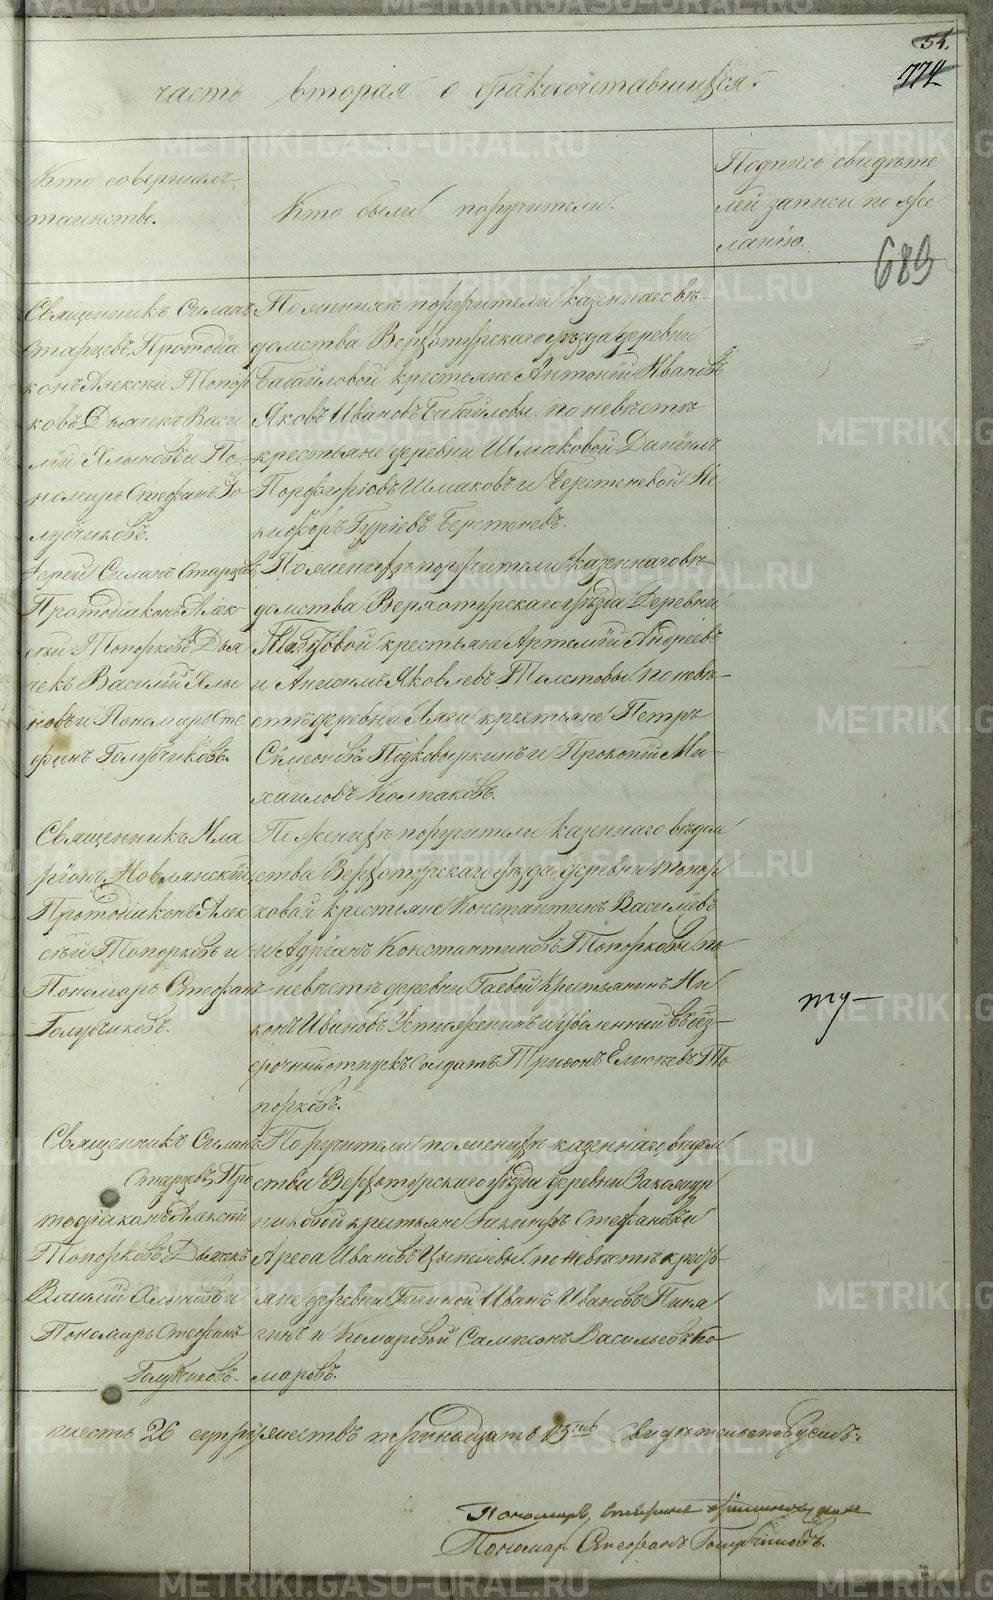 54.
774
часть вторая о бракосочетавшихся.
Кто совершалъ
таинство.
Кто были поручители.
Подпись свидѣте
лей записи по же
ланію.
689
Священникъ Силанъ
Старцевъ, Протодіа
конъ Алексѣй Топор
ковъ Дьячекъ Васи
лій Ялыновъ и По
номарь Стефанъ Го
лубчиковъ.
По женихѣ поручители казеннаго вѣ
домства Верхотурскаго уѣзда деревни
Бабайловой крестьяне Антоній Ивановъ
Яковъ Ивановъ Бабайловы. по невѣстѣ
крестьяне деревни Шмаковой Даніилъ
Порфирьевъ Шмаковъ и Берстеневой Ни
кифоръ Гурьевъ Берстеневъ.
Іерей Силанъ Старцевъ
Протодіаконъ Алек
сѣй Топорковъ Дья
чекъ Василій Ялы
новъ и Пономарь Сте
фанъ Голубчиковъ.
По женихѣ поручители казеннаго вѣ
домства Верхотурскаго уѣзда деревни
крестьяне Артемій Андреевъ
и Яковлевъ Толстовы по невѣ
стѣ деревни Ляги крестьяне Петръ
Симеоновъ Подковыркинъ и Прокопій Ми
хаиловъ Колпаковъ.
Священникъ Ила
ріонъ Мовлянскій
Протодіаконъ Алек
сѣй Топорковъ и
Пономарь Стефанъ
Голубчиковъ.
По женихѣ поручители казеннаго вѣдом
ства Верхотурскаго уѣзда деревни Топор
ковой крестьяне Константинъ Васильевъ
и Адріанъ Константиновъ Топорковы. по
невѣстѣ деревни Гаевой Крестьянинъ Ни
конъ Ивановъ Устюженинъ и уволенный въ без
срочный отпускъ Солдатъ То
порковъ.
Священникъ Силанъ
Старцевъ, Про
тодіаконъ Алексѣй
Топорковъ Дьячекъ
Василій Ялыновъ и
Пономарь Стефанъ
Голубчиковъ.
Поручители по женихѣ казеннаго вѣдом
ства Верхотурскаго уѣзда деревни Закожур
никовой крестьяне Стефановъ и
Ивановъ по невѣстѣ крестья
яне деревни Иванъ Ивановъ Пиня
гинъ и Комаровой Сампсонъ Васильевъ Ко
маровъ.
шесть 26 супружествъ тринадцать 13ть свидѣтельствуемъ.
Пономарь
Пономарь Стефанъ Голубчиковъ.
METRIKI.GASO-URAL.RU